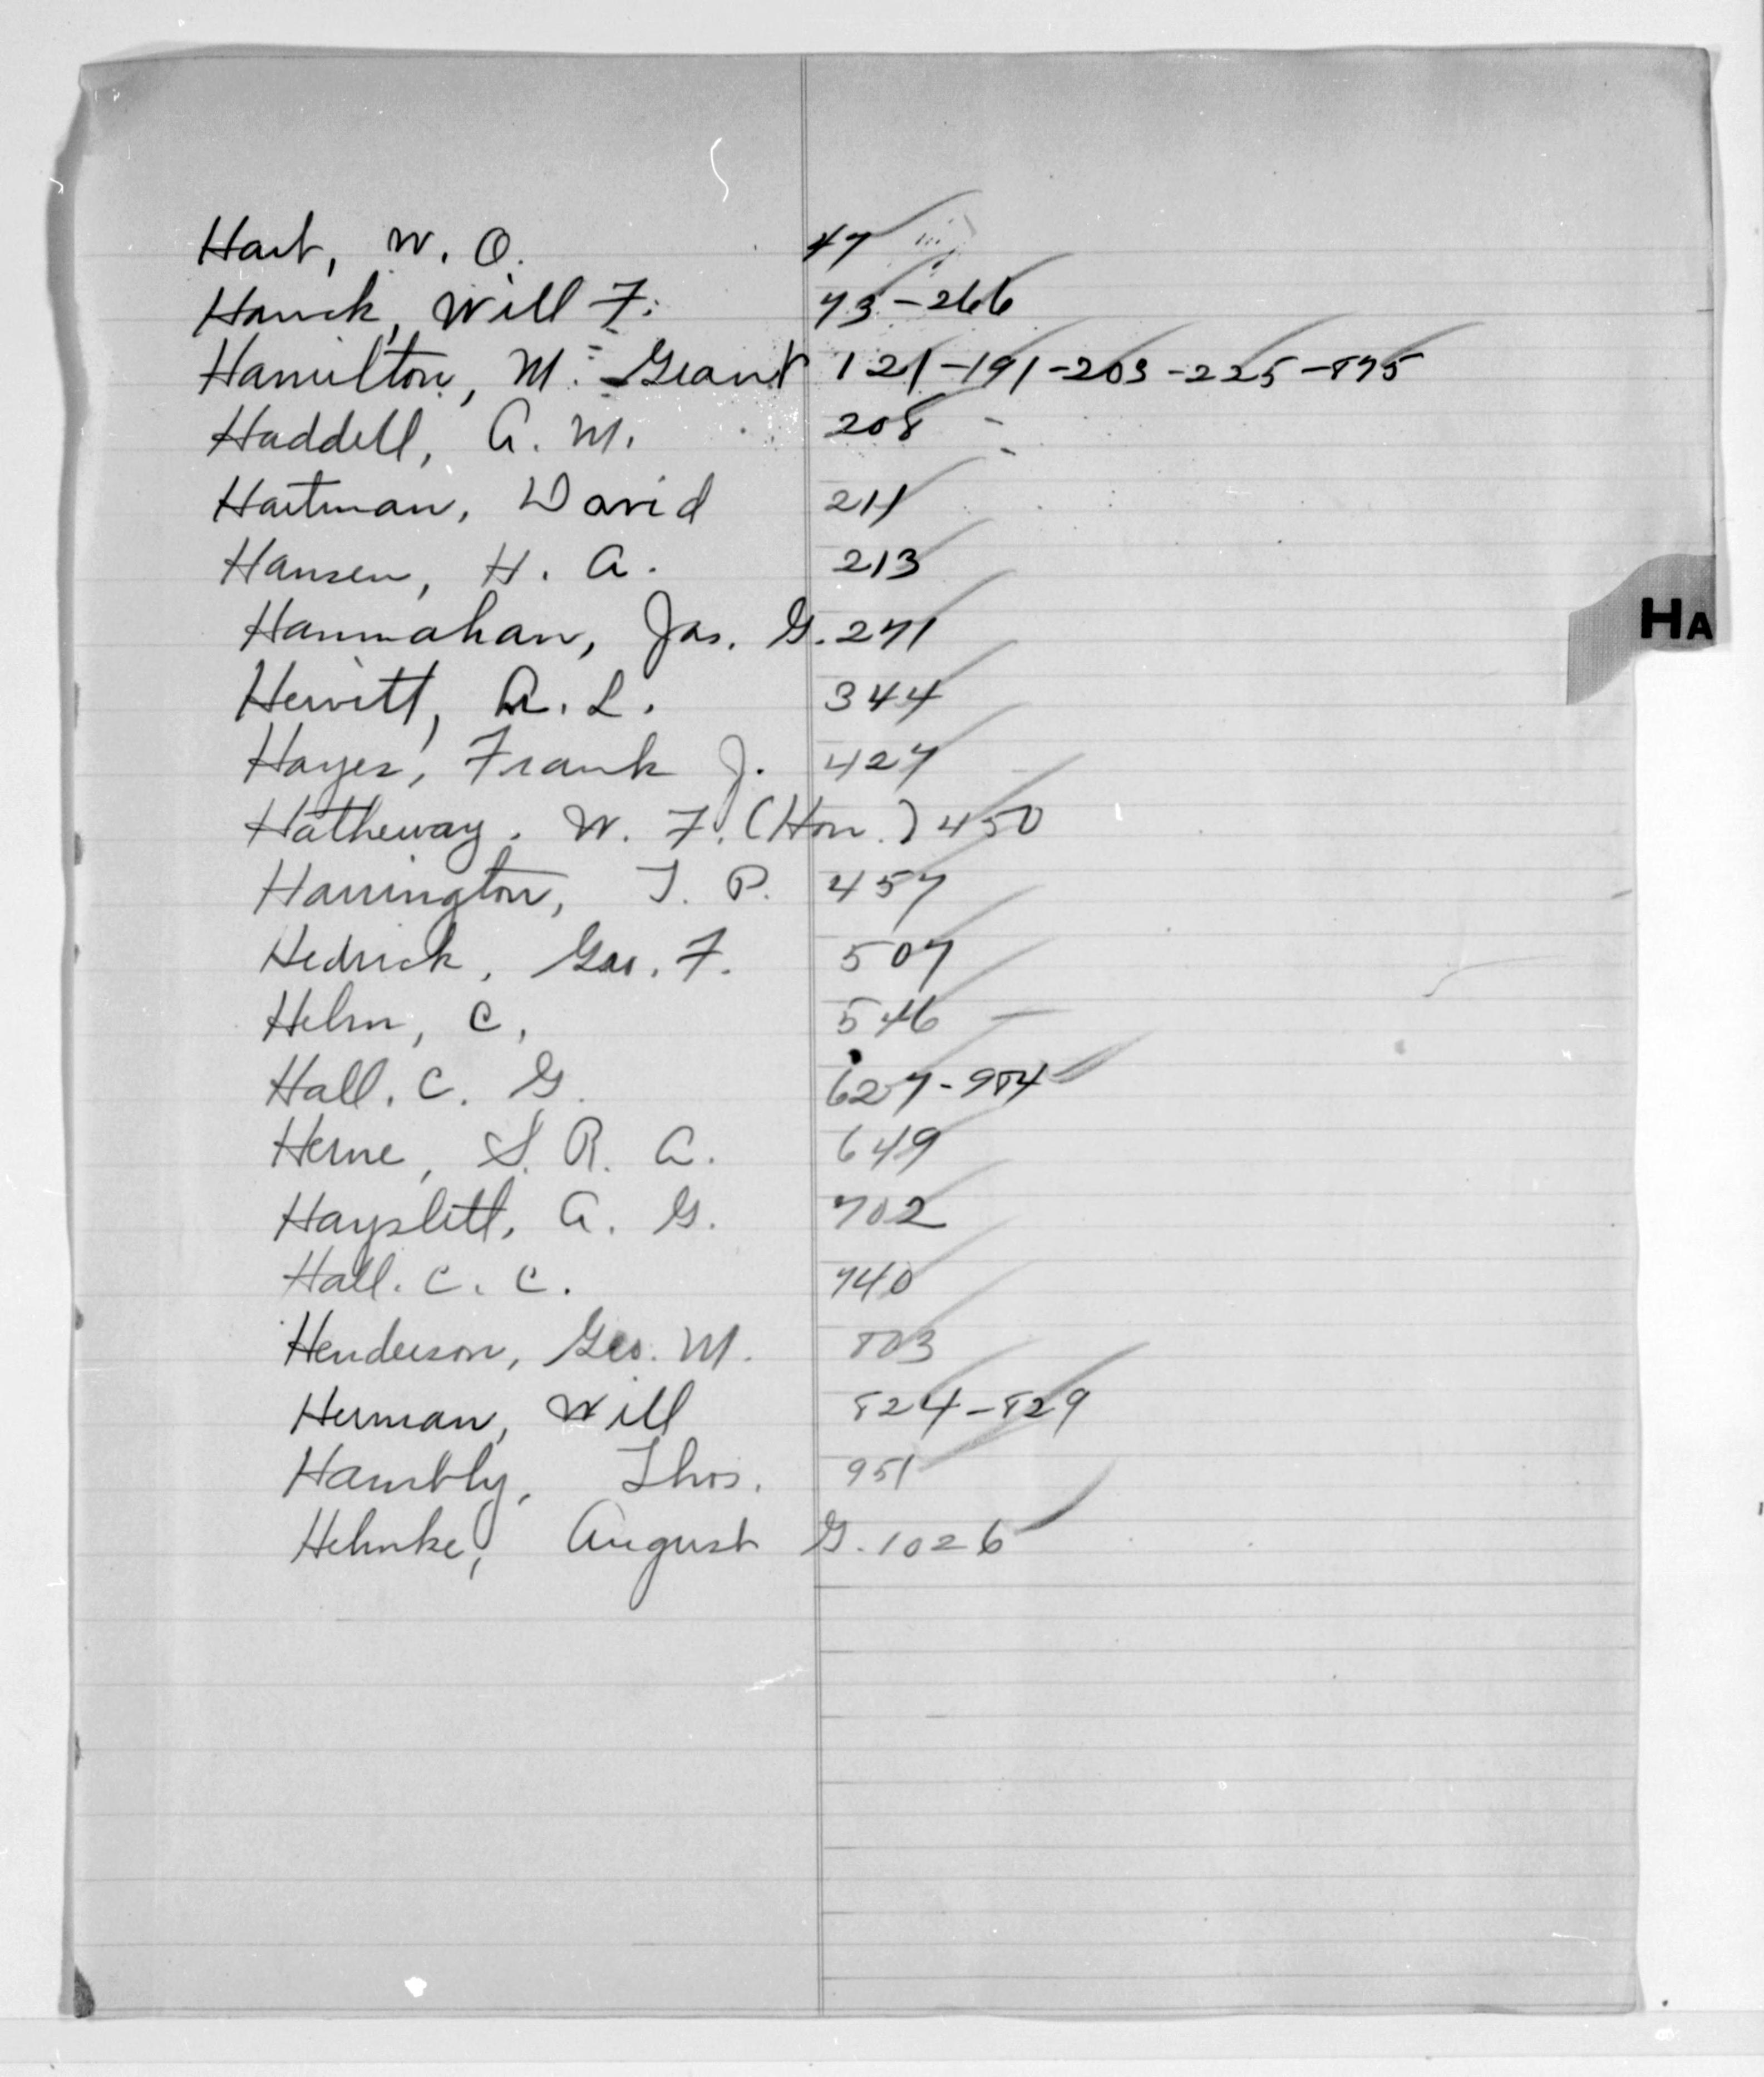 Hart, W. O. 47
Hauck, Will F. 73-266
Hamilton, M. Grant 121-191-203-225-875
Haddell, A. M. 208
Hartman, David 211
Hansen, H. A. 213
HA
Hannahan, Jas. G. 271
Hewitt, A. L. 344
Hayes, Frank J. 427
Hatheway. W. F. (Hon.) 450
Harrington, T. P. 457
Hedrick, Geo. F. 507
Helm, C. 546
Hall. C. G. 627-984
Herne, S. R. A. 649
Hayslett, A. G. 702
Hall. C. C. 740
Henderson, Geo. M. 803
Herman, Will 824-829
Hambly, Thos. 951
Helmke, August G. 1026